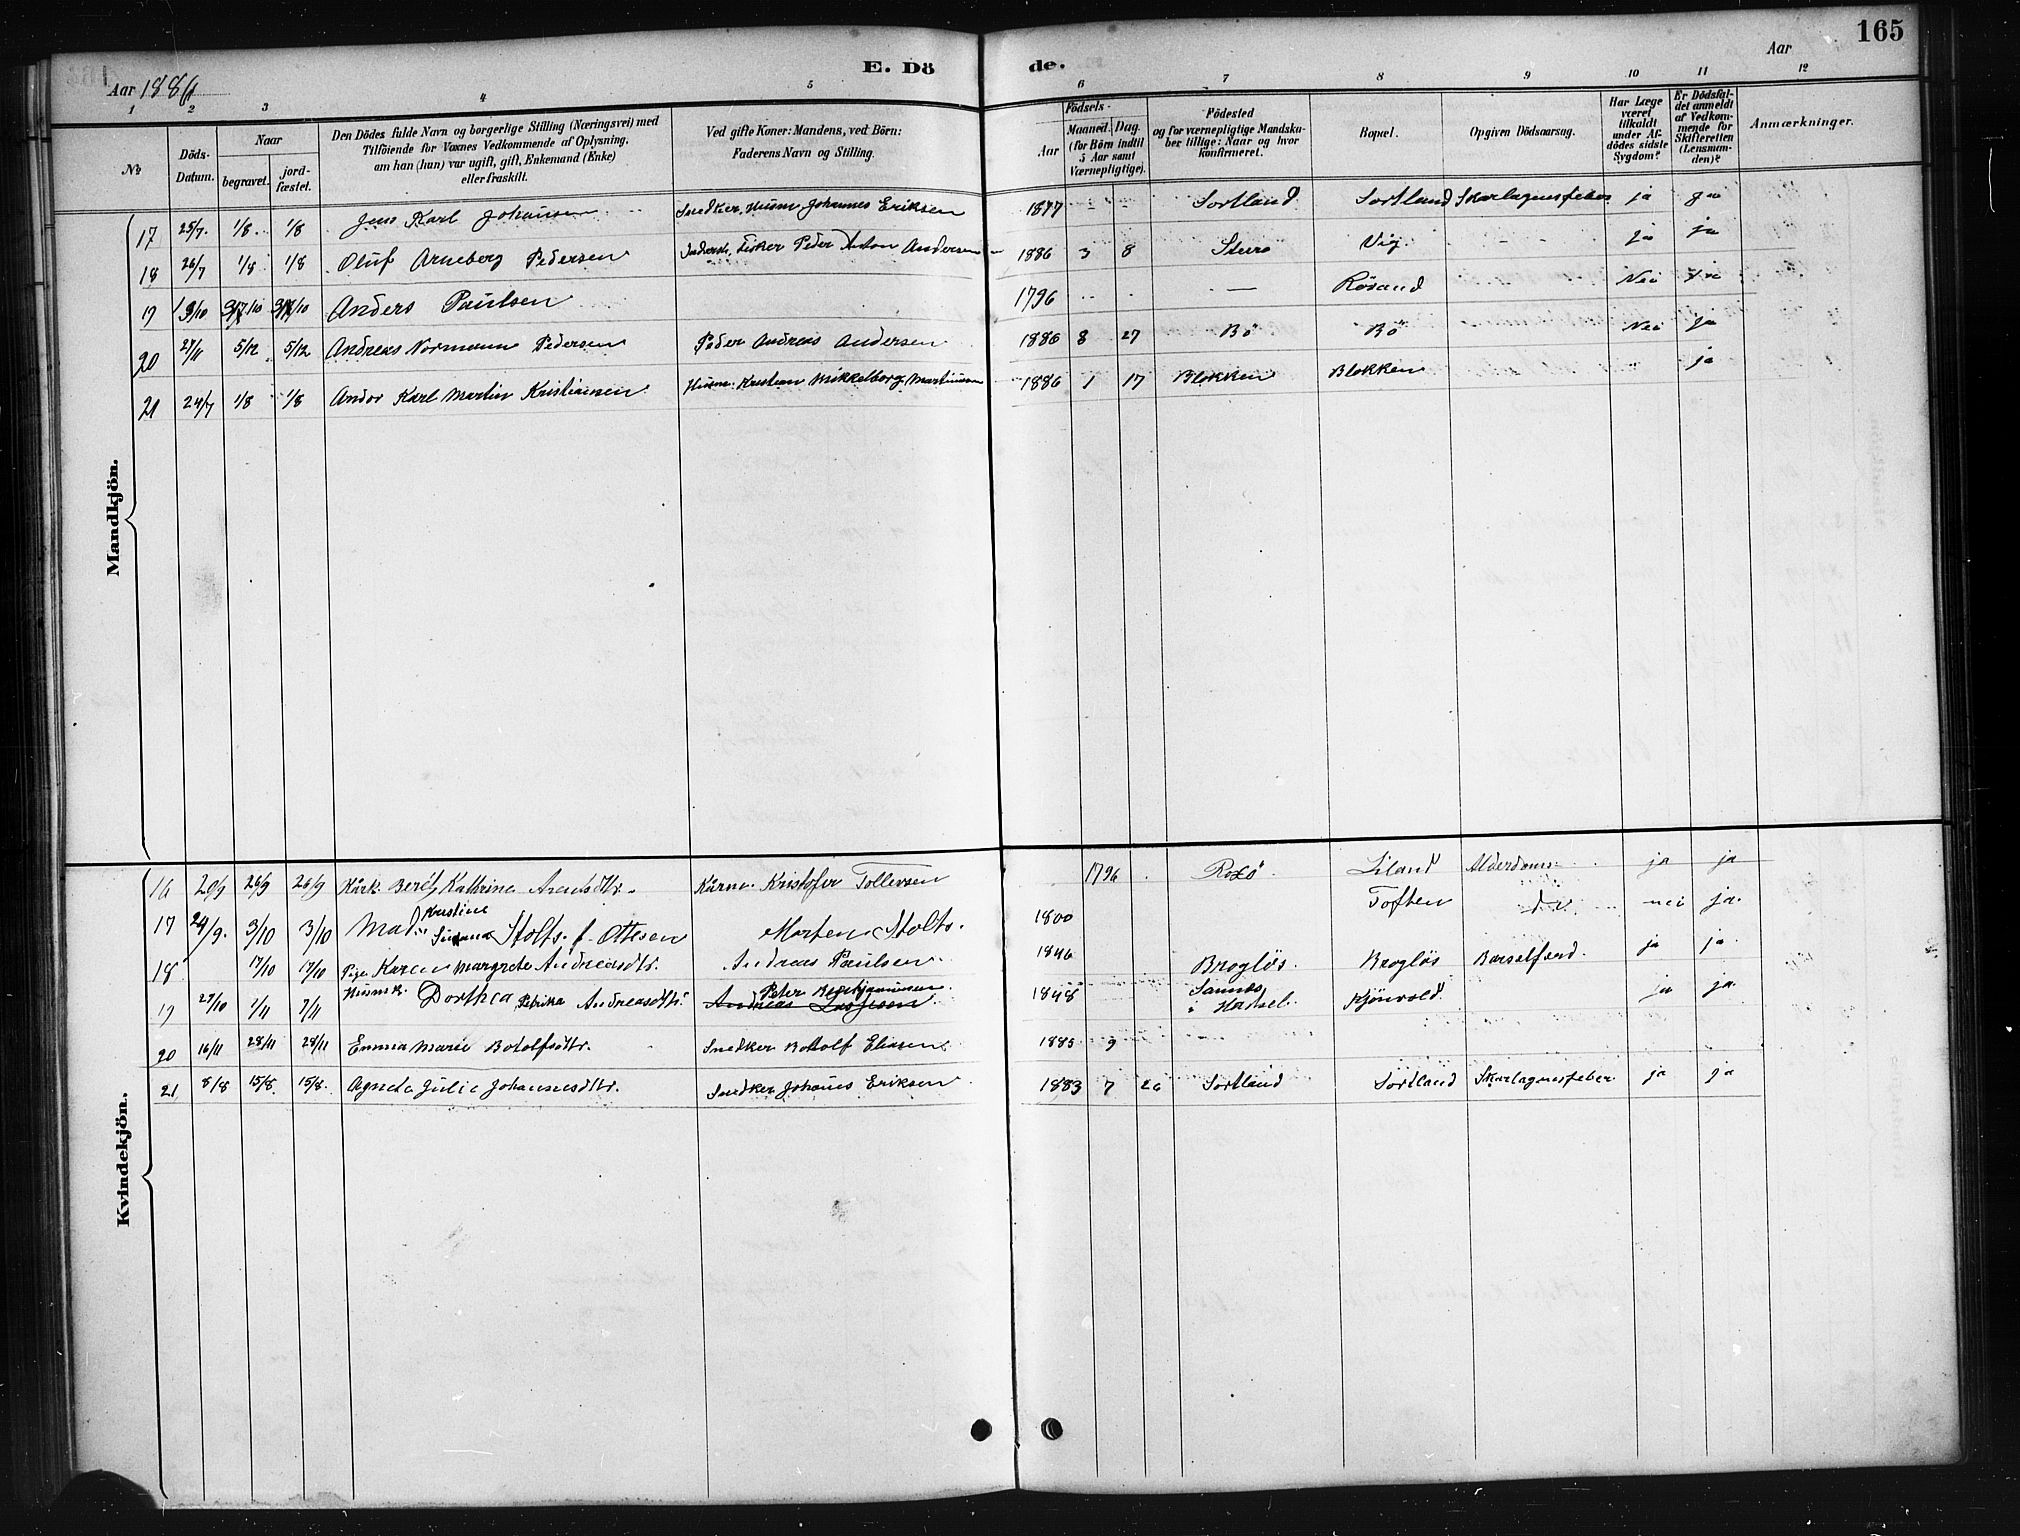 165
E. Döde.
Aar 1886
Aar
1 2 3 4 5 6 7 8 9 10 11 12
No
Döds-Datum.
Naar
begravet.
jord-fæstet.
Den Dödes fulde Navn og borgerlige Stilling (Næringsvei) med
Tilföiende for Voxnes Vedkommende af Oplysning,
om han (hun) var ugift, gift, Enkemand (Enke)
eller fraskilt.
Ved gifte Koner: Mandens, ved Börn:
Faderens Navn og Stilling.
Födsels-
Aar
Maaned. Dag
(for Börn indtil
5 Aar samt
Værnepligtige).
Födested
og for værnepligtige Mandska-
ber tillige: Naar og hvor
konfirmeret.
Bopæl.
Opgiven Dödsaarsag.
Har Læge
været
tilkaldt
under Af-
dödes sidste
Sygdom?
Er Dödsfal-
det anmeldt
af Vedkom-
mende for
Skifteretten
(Lensman-
den)?
Anmærkninger.
Mandkjön.
17 25/7. 1/8. 1/8 Jens Karl Johansen Snedker, Husm Johannes Eriksen 1877 Sortland Sortland Skarlagensfeber ja ja
18 26/7 1/8 1/8 Oluf Arneberg Pedersen Fisker Peder Anton Andersen 1886 3 8 Vig ja ja
19 Anders Paulsen 1796 Rösand Nei ja
20 27/11 5/12 5/12 Andreas Normann Pedersen Peder Andreas Andersen 1886 8 27 Bö Bö Nei ja
21 24/7 1/8 1/8 Andor Karl Martin Kristiansen Husm. Kristian Mikkelborg Martinsen 1886 1 17 Blokken Blokken ja
Kvindekjön.
16 20/9 26/9 26/9 Kårk. Kathrina Arentsdtr. Kårm. Kristofer Tollevsen 1796 Liland Alderdoms ja ja
17 24/9. 3/10 3/10 Mad. Kristine Susana Stolts f. Ottesen Morten Stolts. 1800 Toften do nei ja.
18 17/10 17/10 Pige Karen Margrete Andreasdtr. Andreas Paulsen 1846 Broglös. Broglös Barselfeed. ja ja
19 27/10 7/11 7/11 Husmk. Dorthea Petrika Andreasdtr. Peter 1848 Hadsel. Kjönvold ja ja.
20 16/11 28/11 28/11 Emma Marie Botolfsdtr. Snedker Botolf Eliasen 1885 9
21 8/8 15/8. 15/8. Agneta Julie Johannesdtr. Snedker Johanes Eriksen 1883 7 26 Sortland Sortland Skarlagensfeber ja ja